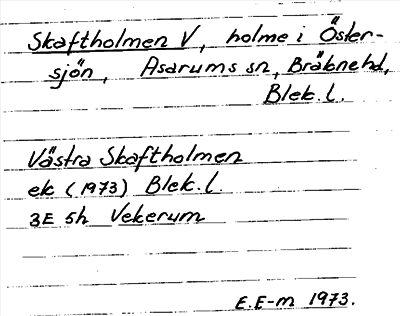 Skaftholmen V, holme i Öster-
sjön, Asarums sn, Bräkne hd,
Blek. l.
Västra Skaftholmen
ek (1973) Blek. l.
3E 5h Vekerum
E.E-m 1973.